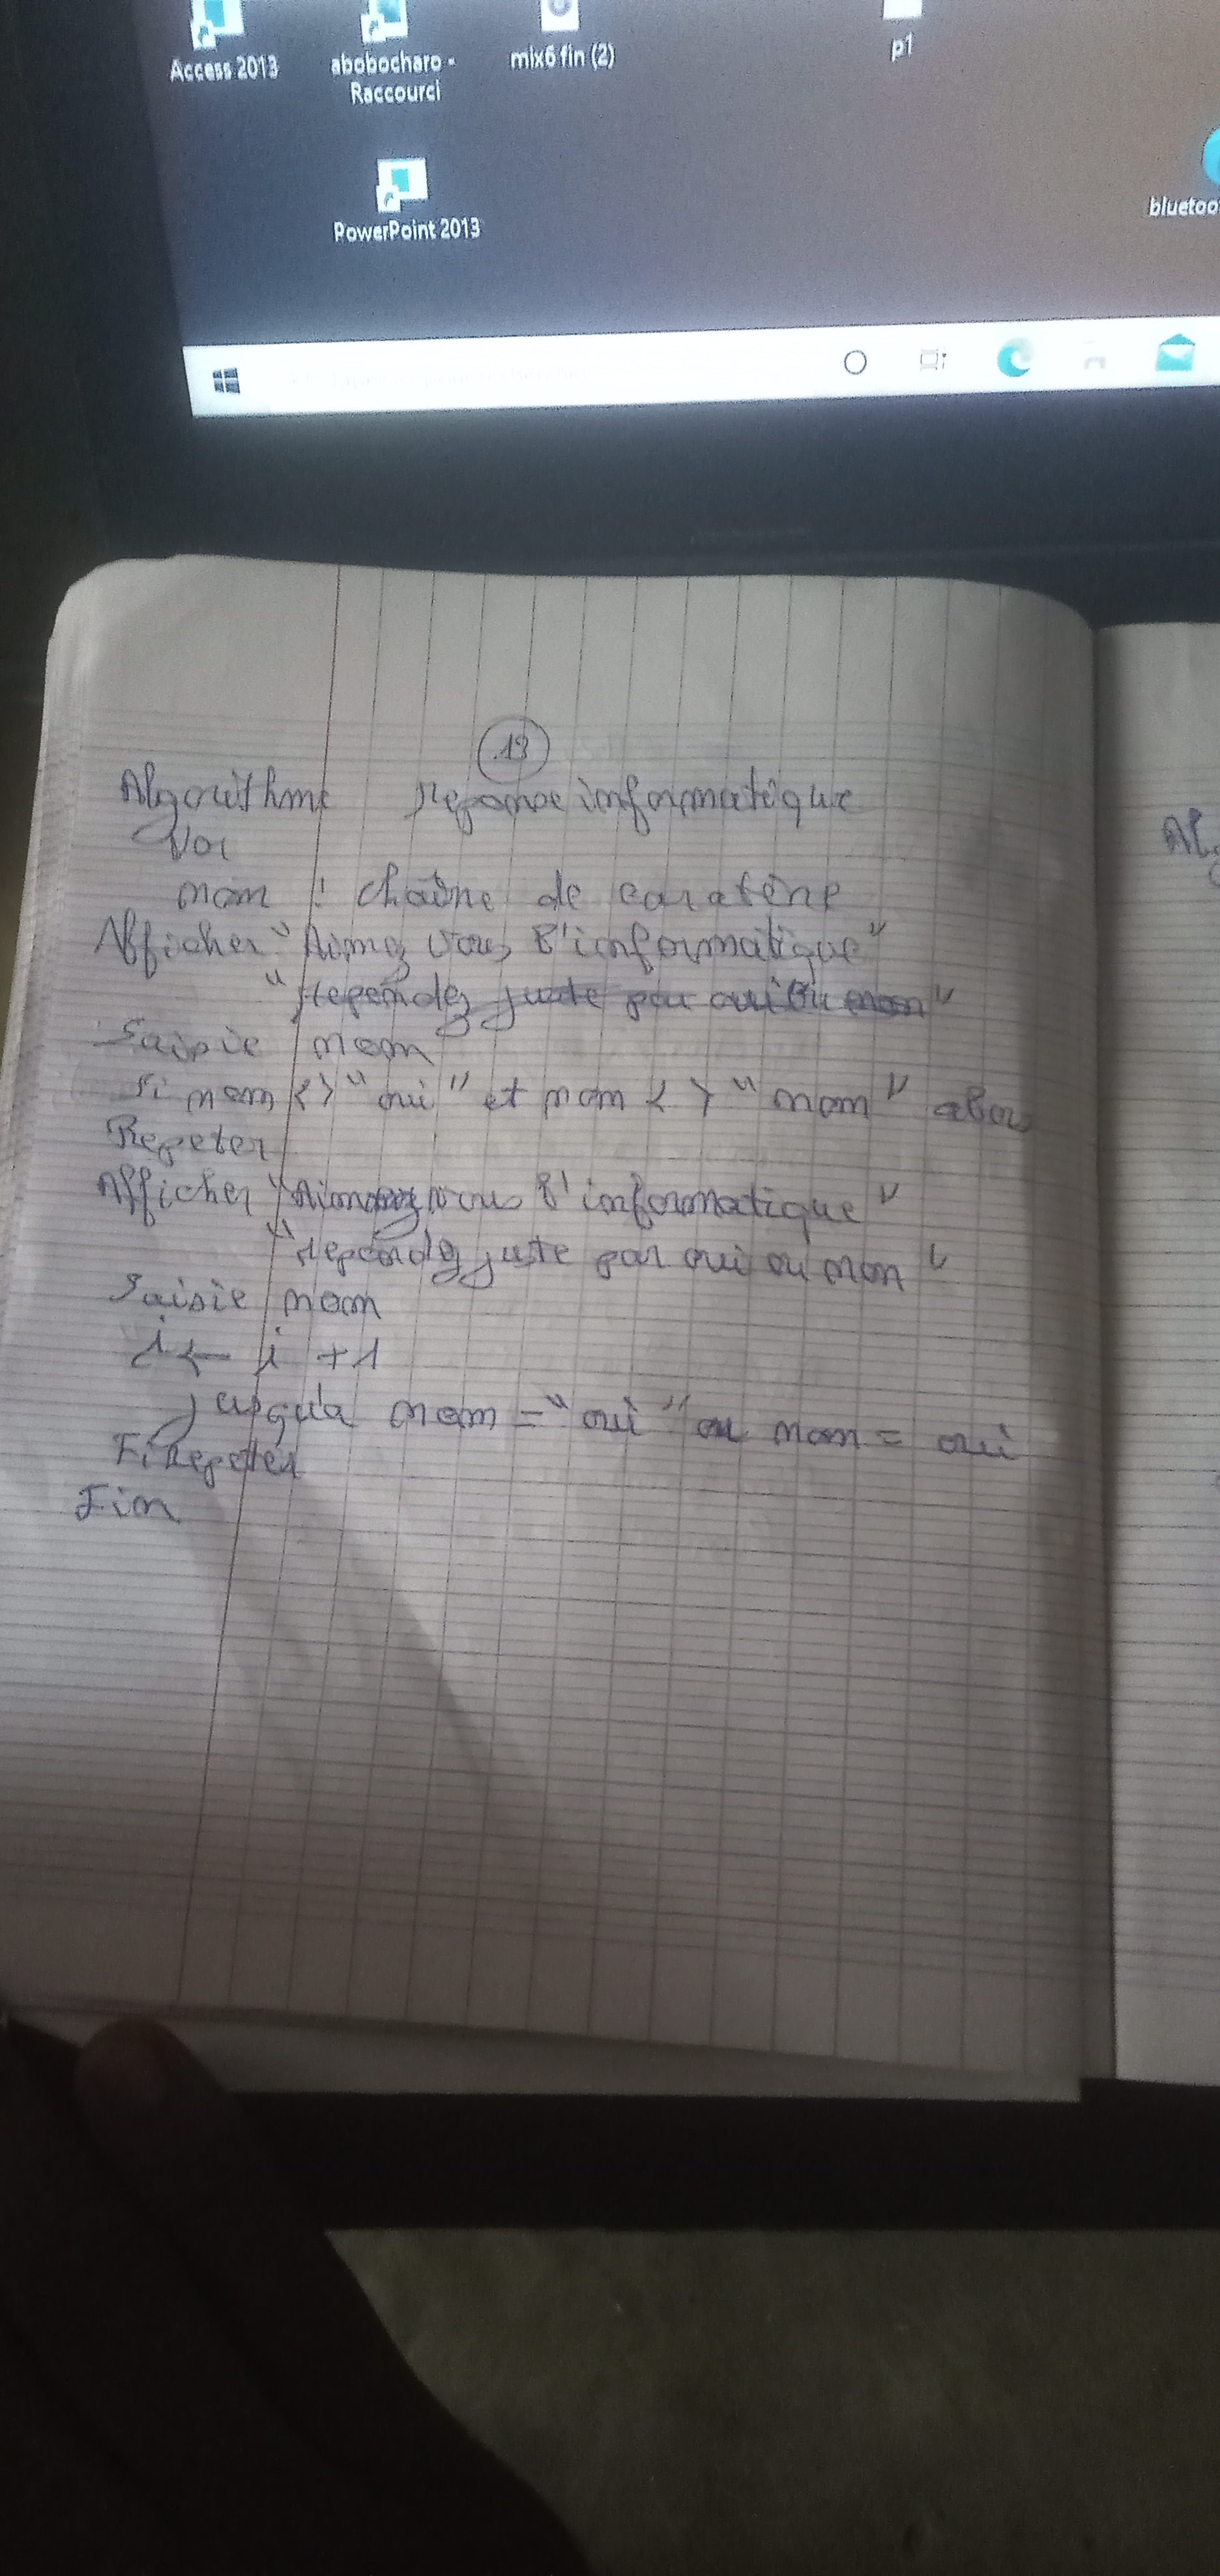 Access 2013
abobocharo -
Raccourci
mix6 fin (2)
p1
PowerPoint 2013
bluetoo
13
Algorithme reponse informatique
Var
nom : chaîne de caratère
Afficher "Aimez vous l'informatique"
"repondez juste par oui ou non"
Saisie nom
Si nom <> "oui" et nom < > "non" alors
Repeter
Afficher "Aimez vous l'informatique"
"repondez juste par oui ou non"
Saisie nom
i ← i + 1
jusqua nom = "oui" ou nom = oui
FiRepeter
Fin
Al